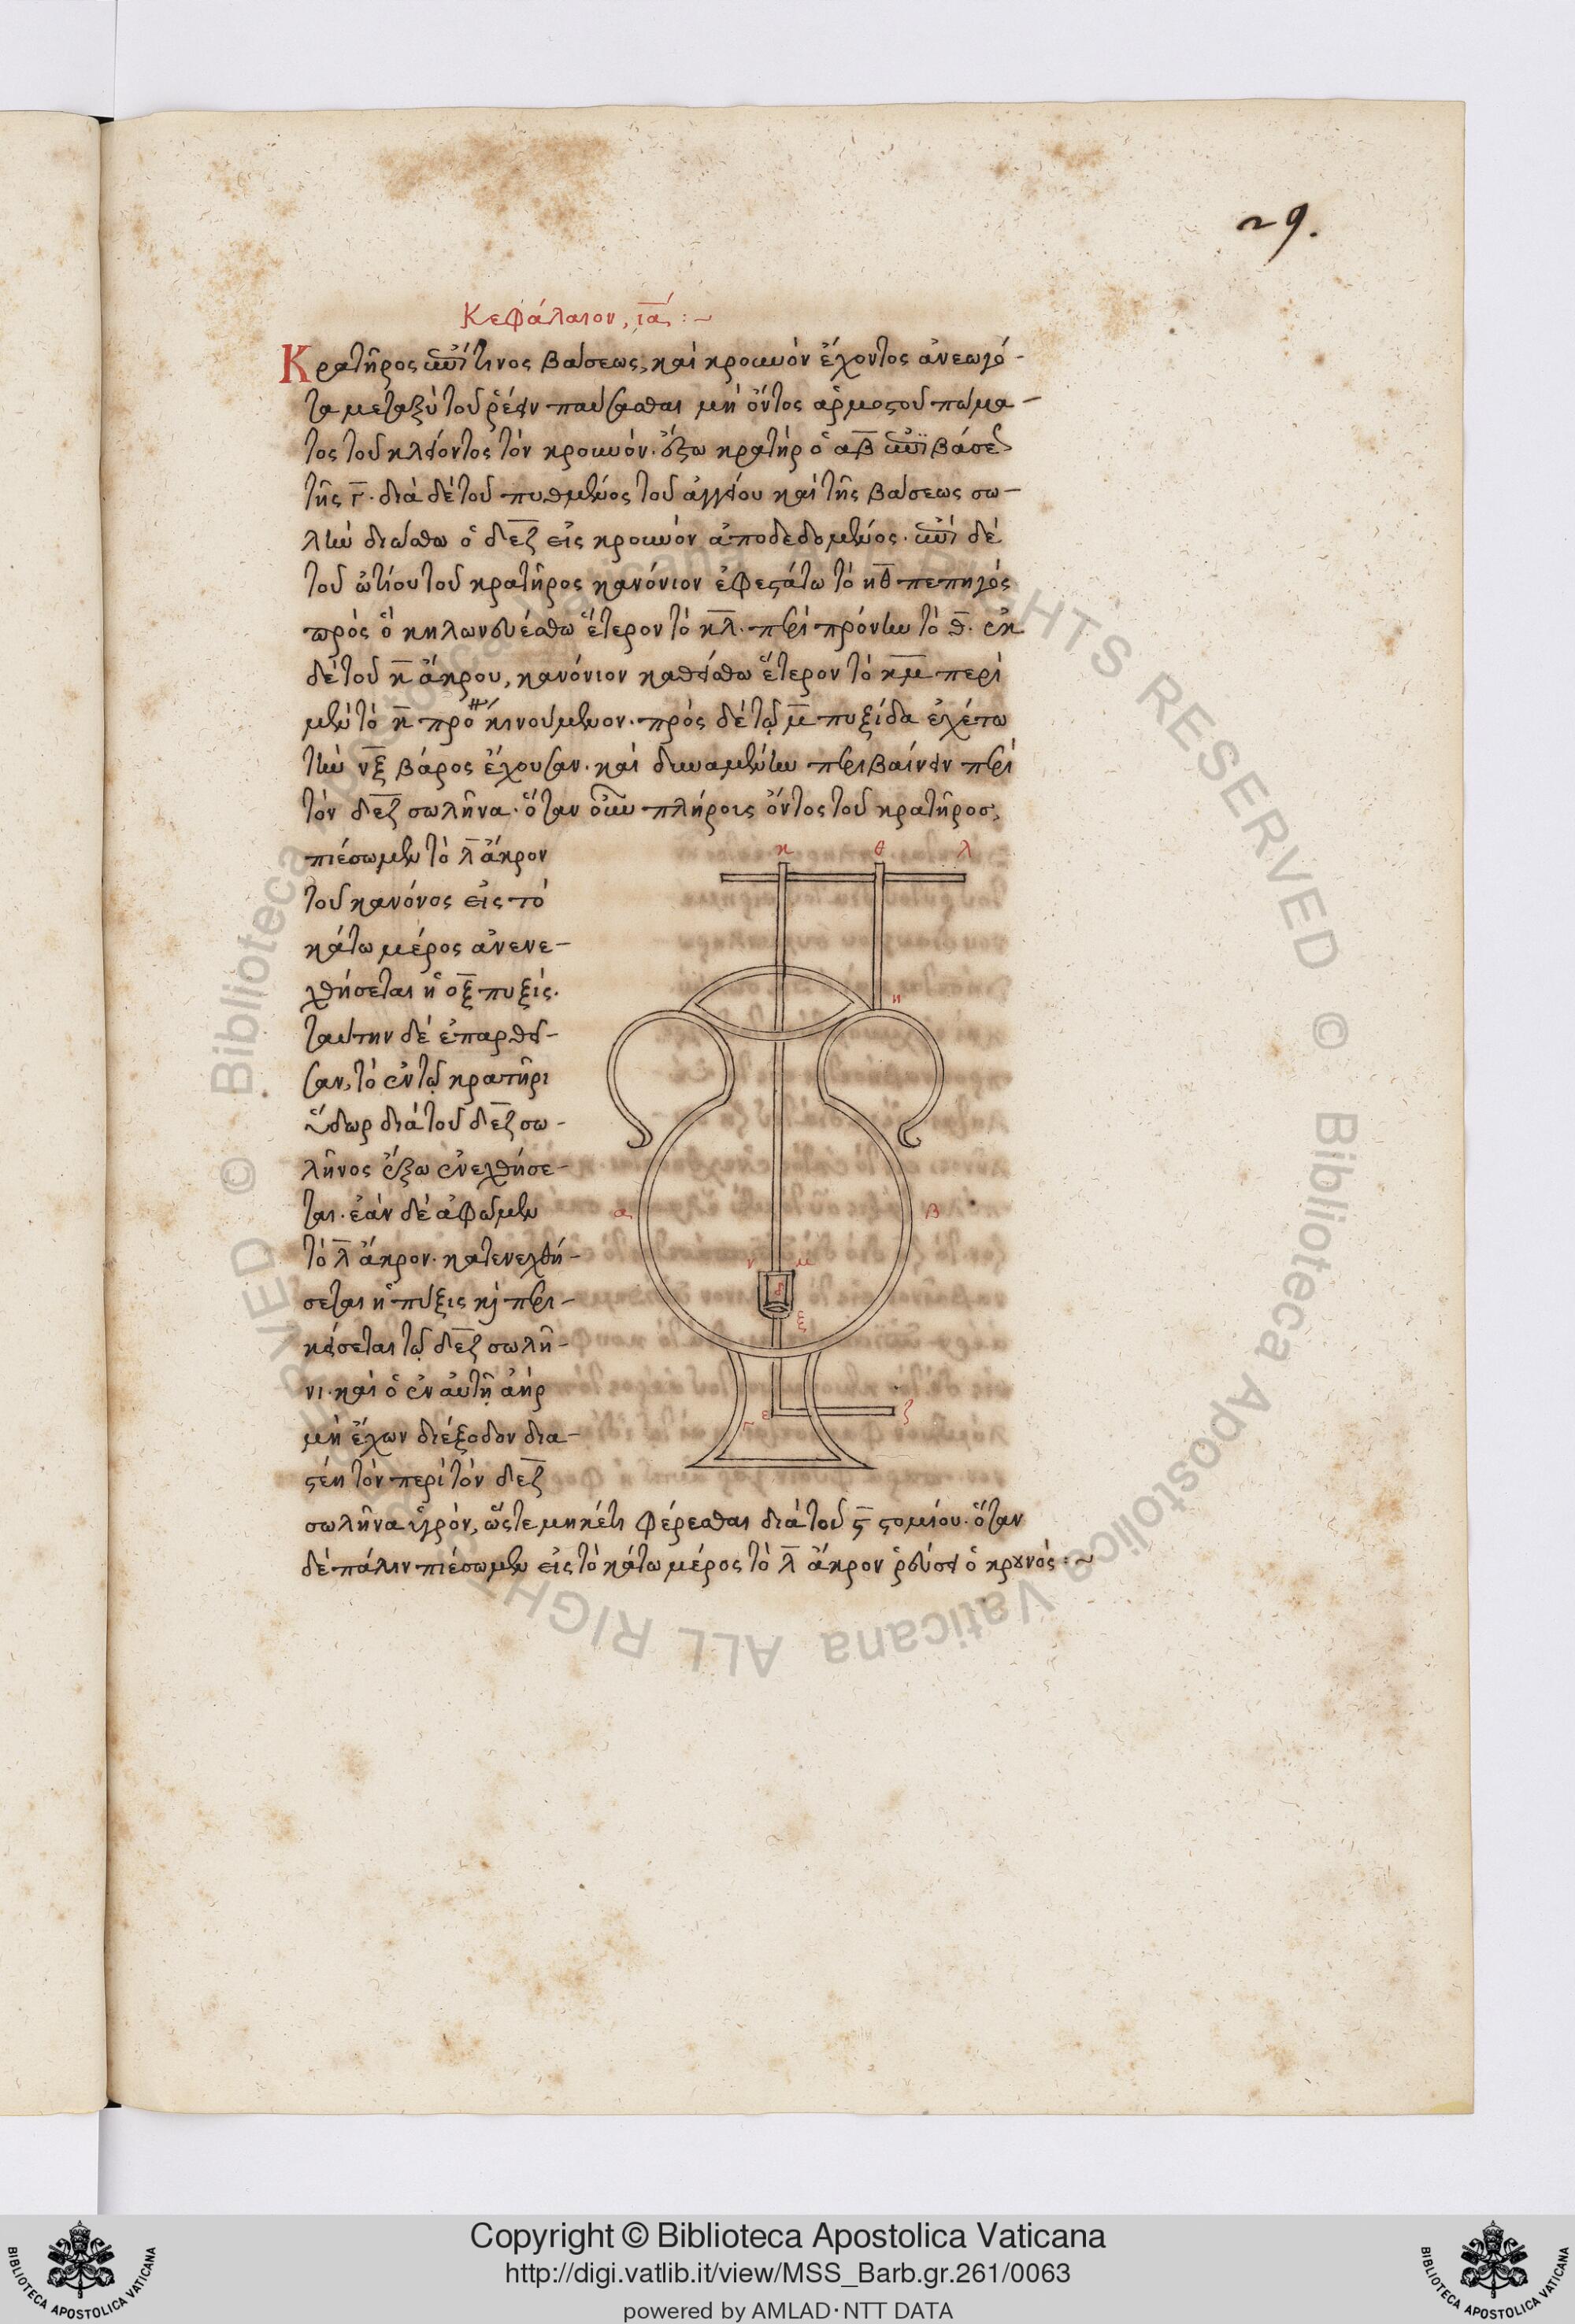 29.
Κεφάλαιον, ια:~
Κρατῆρος ἐπί τινος βάσεως, καὶ κρουνὸν ἔχοντος ἀνεωγό-
τα μεταξὺ τοῦ ῥέειν παύσασθαι μὴ ὄντος ἁρμοστοῦ πώμα-
τος τοῦ κλείοντος τὸν κρουνόν. ἔστω κρατὴρ ὁ αβ ἐπὶ βάσεως
τῆς γ. διὰ δὲ τοῦ πυθμένος τοῦ ἀγγείου καὶ τῆς βάσεως σω-
λὴν διώσθω ὁ δεζ εἰς κρουνὸν ἀποδεδομένος. ἐπὶ δὲ
τοῦ ὠτίου τοῦ κρατῆρος κανόνιον ἐφεστάτω τὸ ηθ πεπηγός
πρὸς ὃ κηλωνευέσθω ἕτερον τὸ κλ. περὶ περόνην τὸ θ. ἐκ
δὲ τοῦ κ ἄκρου, κανόνιον καθείσθω ἕτερον τὸ κμ περὶ
μὲν τὸ κ πρὸ κινούμενον. πρὸς δὲ τῷ μ πυξίδα ἐχέτω
τὴν νξ βάρος ἔχουσαν. καὶ δυναμένην περιβαίνειν περὶ
τὸν δεζ σωλῆνα. ὅταν οὖν πλήροις ὄντος τοῦ κρατῆρος,
πιέσωμεν τὸ λ ἄκρον
τοῦ κανόνος εἰς τὸ
κάτω μέρος ἀνενε-
χθήσεται ἡ οξ πυξίς.
ταύτην δὲ ἐπαρθεῖ-
σαν, τὸ ἐν τῷ κρατῆρι
ὕδωρ διὰ τοῦ δεζ σω-
λῆνος ἔξω ἐνεχθήσε-
ται. ἐὰν δὲ ἀφῶμεν
τὸ λ ἄκρον. κατενεχθή-
σεται ἡ πύξις κὶ περι-
κείσεται τῷ δεζ σωλῆ-
νι. καὶ ὁ ἐν αὐτῇ ἀὴρ
μὴ ἔχων διέξοδον δια-
στέη τὸν περὶ τὸν δεζ
σωλῆνα ὑγρὸν, ὥστε μηκέτι φέρεσθαι διὰ τοῦ ς στομίου. ὅταν
δὲ πάλιν πιέσωμεν εἰς τὸ κάτω μέρος τὸ λ ἄκρον ῥεύσει ὁ κρουνός:~
κ θ λ
η
α β
ν μ
δ
ξ
γ ε ζ
© Biblioteca Apostolica Vaticana ALL RIGHTS RESERVED © Biblioteca Apostolica Vaticana ALL RIGHTS RESERVED
Copyright © Biblioteca Apostolica Vaticana
http://digi.vatlib.it/view/MSS_Barb.gr.261/0063
powered by AMLAD · NTT DATA
BIBLIOTECA APOSTOLICA VATICANA
BIBLIOTECA APOSTOLICA VATICANA